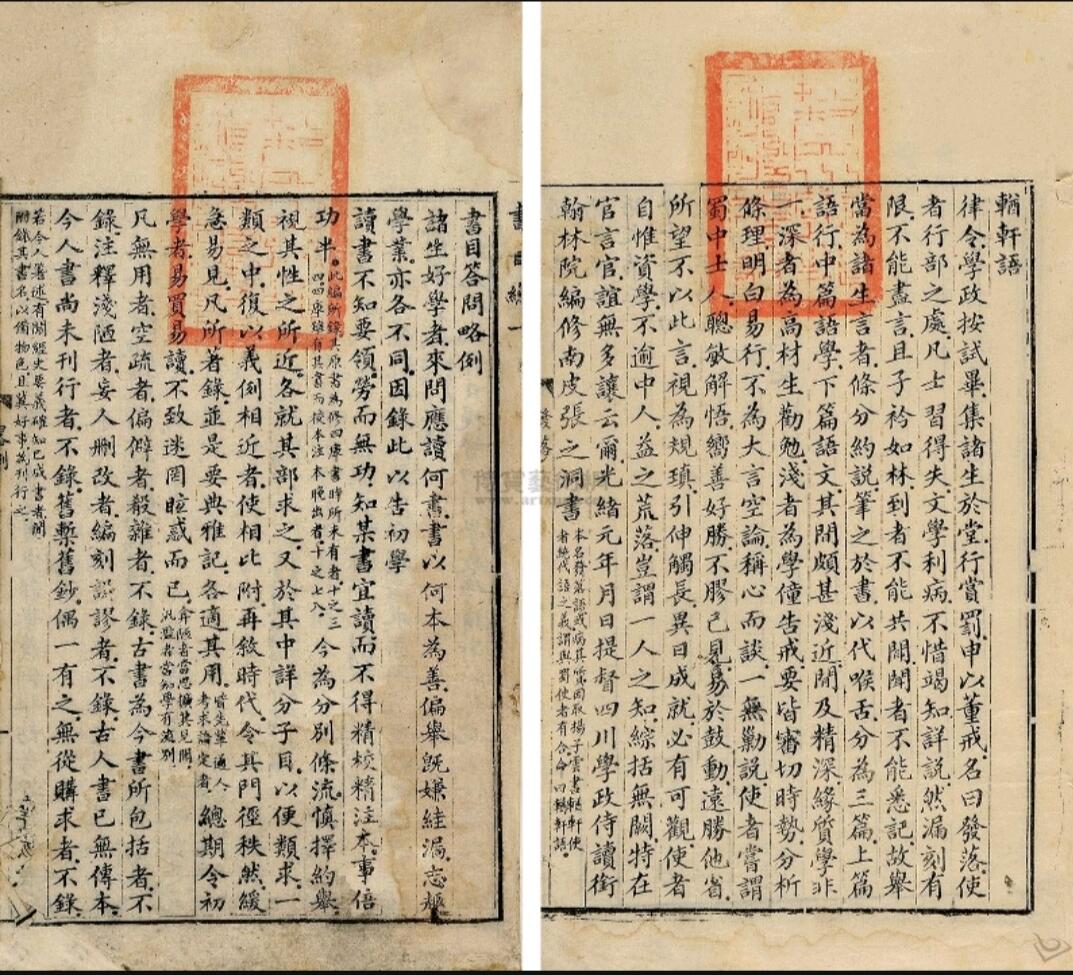 輶軒語
律令學政按試畢集諸生於堂行賞罰申以董戒名曰發落使
者行部之處凡士習得失文學利病不惜竭知詳說然漏刻有
限不能盡言且子衿如林到者不能共聞聞者不能悉記故舉
當為諸生言者條分約說筆之於書以代喉舌分為三篇上篇
語行中篇語學下篇語文其間頗甚淺近閒及精深緣質學非
一深者為高材生勸勉淺者為學僮告戒要皆審切時勢分析
條理明白易行不為大言空論稱心而談一無勦說使者嘗謂
蜀中士人聰敏解悟嚮善好勝不膠已見易於鼓動遠勝他省
所望不以此言視為規瑱引伸觸長異日成就必有可觀使者
自惟資學不逾中人益之荒落豈謂一人之知綜括無闕特在
官言官誼無多讓云爾光緒元年月日提督四川學政侍讀銜
翰林院編修南皮張之洞書
本名發落語或病其質因取揚子雲書輶軒使
者絕代語之義謂與蜀使者有合命曰輶軒語
書目答問略例
諸生好學者來問應讀何書書以何本為善偏舉既嫌絓漏志趣
學業亦各不同因錄此以告初學
讀書不知要領勞而無功知某書宜讀而不得精校精注本事倍
功半
此編所錄其原書為修四庫書時所未有者十之三
四四庫雖有其書而校本注本晚出者十之七八
今為分別條流慎擇約舉
視其性之所近各就其部求之又於其中詳分子目以便類求一
類之中復以義例相近者使相比附再敘時代令其門徑秩然緩
急易見凡所著錄並是要典雅記各適其用
皆先輩通人
考求論定者
總期令初
學者易買易讀不致迷罔眩惑而已
弇陋者當思擴其見聞
汎濫者當知學有流別
凡無用者空疏者偏僻者殽雜者不錄古書為今書所包括者不
錄注釋淺陋者妄人刪改者編刻譌謬者不錄古人書已無傳本
今人書尚未刊行者不錄舊槧舊鈔偶一有之無從購求者不錄
若今人著述有關經史要義確知已成書者間
附錄其書名以備物色且冀好事為刊行之